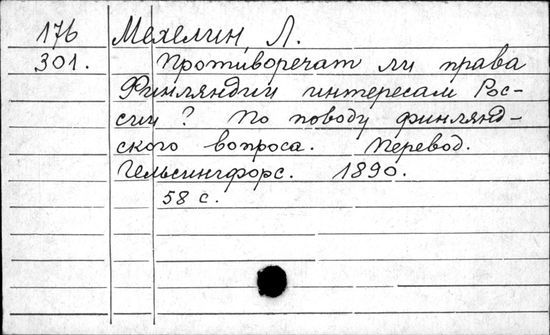 176 Мехелин, Л.
301. Противоречат ли права
Финляндии интересам Рос-
сии? По поводу финлянд-
ского вопроса. Перевод.
Гельсингфорс. 1890.
58 с.